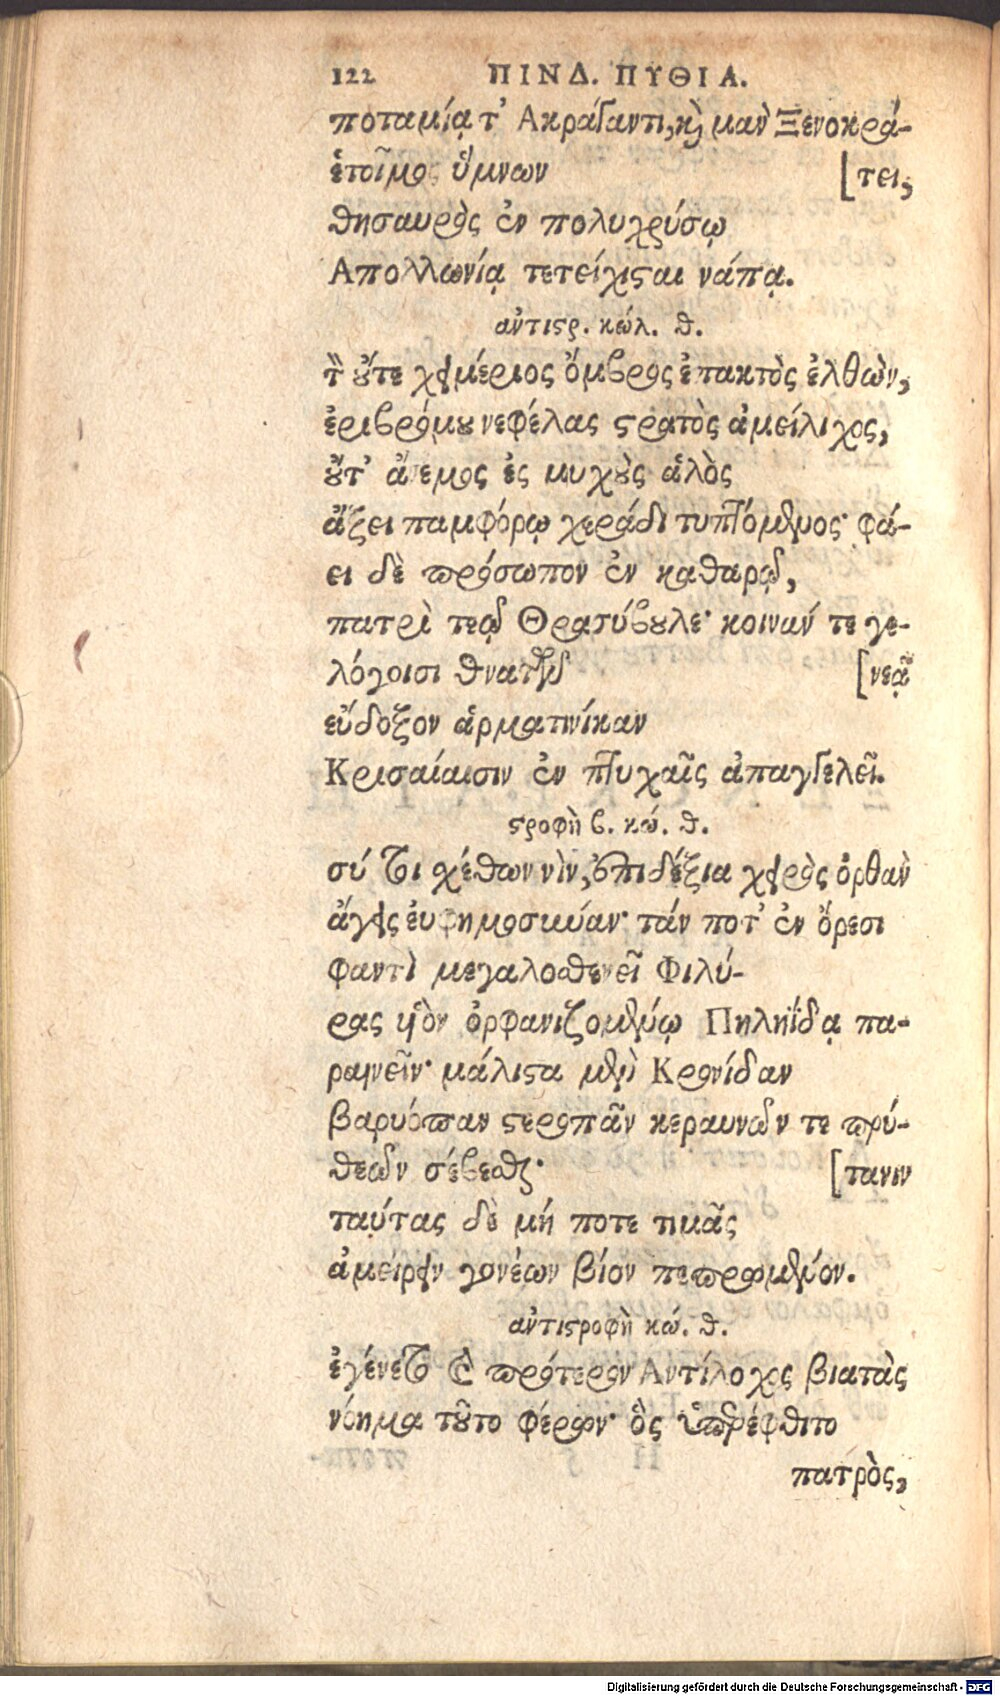 122 ΠΙΝΔ. ΠΥΘΙΑ.
ποταμίᾳ τ' Ακράγαντι, κὶ μαὰν Ξενοκρά-
ἑτοῖμος ὕμνων [τει,
θησαυρὸς ἐν πολυχρύσῳ
Απολλωνίᾳ τετείχισται νάπᾳ.
ἀντιστρ. κώλ. θ.
τὸν οὔτε χειμέριος ὄμβρος ἐπακτὸς ἐλθὼν,
ἐριβρόμου νεφέλας στρατὸς ἀμείλιχος,
οὔτ' ἄνεμος ἐς μυχοὺς ἁλὸς
ἄξει παμφόρῳ χεράδι τυπτόμενος· φά-
ει δὲ πρόσωπον ἐν καθαρῷ,
πατρὶ τεῷ Θρασύβουλε· κοινάν τε γε-
λόγοισι θνατῶν [νεᾷ
εὔδοξον ἁρματινίκαν
Κρισαίαισιν ἐν πτυχαῖς ἀπαγγελεῖ.
στροφὴ β. κώ. θ.
σύ τοι σχέθων νὶν, ἐπιδέξια χειρὸς ὀρθὰν
ἄγεις ἐυφημοσιωύαν· τάν ποτ' ἐν ὄρεσι
φαντὶ μεγαλοσθενεῖ Φιλύ-
ρας υἱὸν ὀρφανιζομένῳ Πηληΐδᾳ πα-
ραινεῖν· μάλιστα μὲν Κρονίδαν
βαρυόπαν στεροπᾶν κεραυνῶν τε πρύ-
θεῶν σέβεσθαι· [τανιν
ταύτας δὲ μή ποτε τιμᾶς
ἀμείρειν γονέων βίον πεπρωμένον.
ἀντιστροφὴ κώ. θ.
ἐγένετο καὶ πρότερον Αντίλοχος βιατὰς
νόημα τοῦτο φέρων· ὃς ὑπερέφθιτο
πατρὸς,
Digitalisierung gefördert durch die Deutsche Forschungsgemeinschaft - DFG